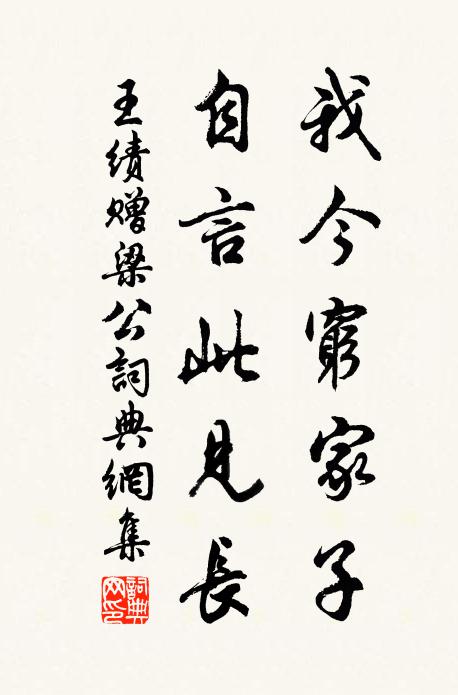 我今窮家子
自言此見長
王績贈梁公詞典網集
詞典網印